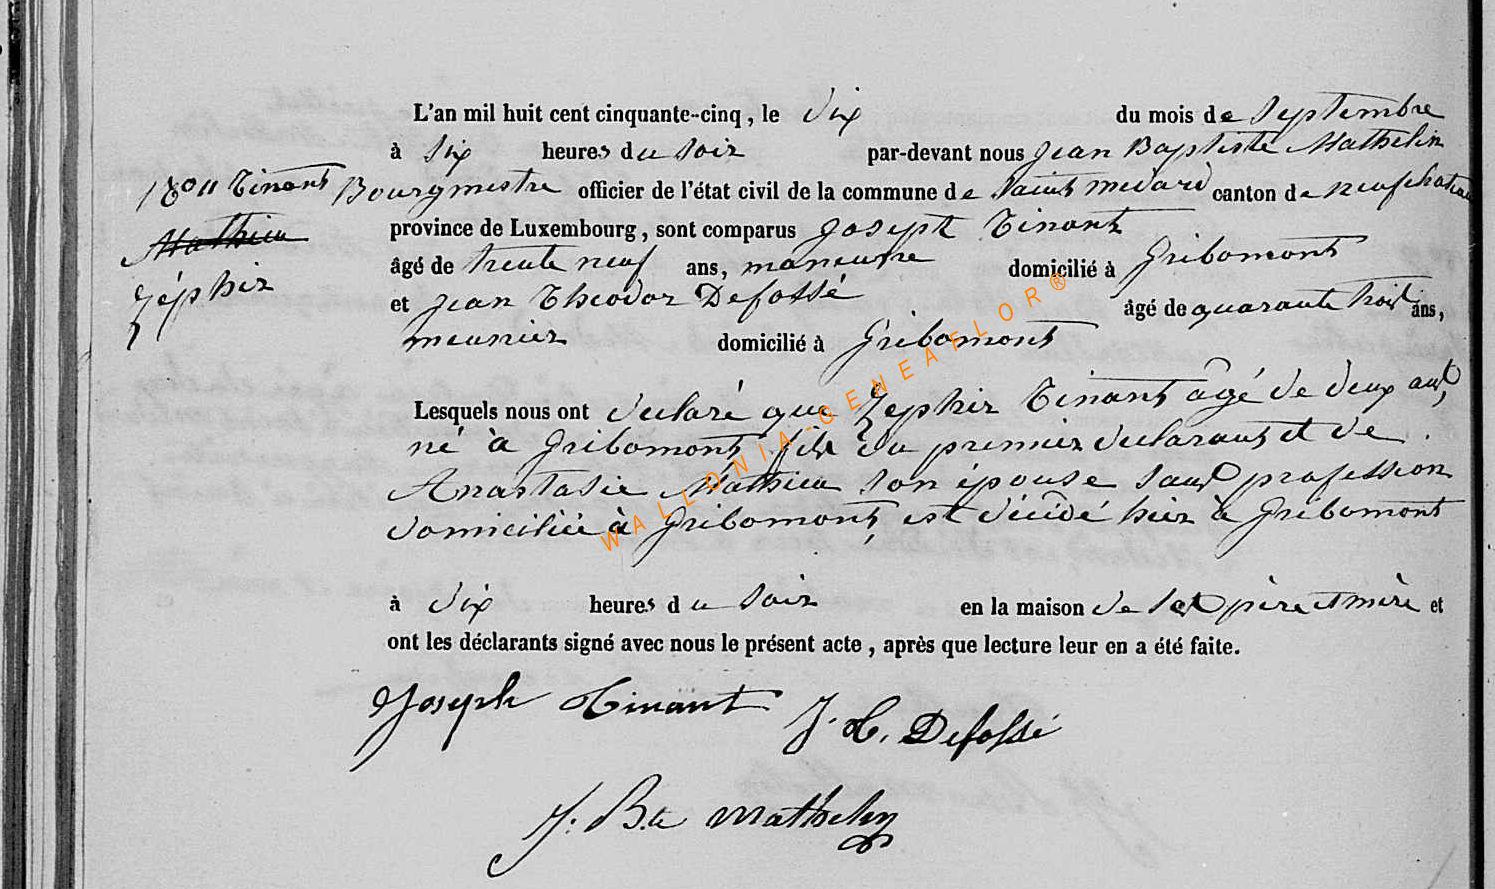 L'an mil huit cent cinquante-cinq, le dix du mois de Septembre
à six heures du soir par-devant nous Jean Baptiste Mathelin
Bourgmestre officier de l'état civil de la commune de Saint Medard canton de neufchateau
province de Luxembourg, sont comparus Joseph Tinant
âgé de trente neuf ans, manœuvre domicilié à Gribomont
et Jean Theodor Defossé âgé de quarante trois ans,
meunier domicilié à Gribomont
Lesquels nous ont déclaré que Zephir Tinant âgé de deux ans,
né à Gribomont fils du premier declarant et de
Anastasie Mathieu son épouse sans profession
domiciliée à Gribomont, est décédé hier à Gribomont
à dix heures du soir en la maison de ses père et mère et
ont les déclarants signé avec nous le présent acte, après que lecture leur en a été faite.
Joseph Tinant J. T. Defossé
J. Bte Mathelin
Tinant
Mathieu
Zéphir
WALLONIA-GENEAFLOR®